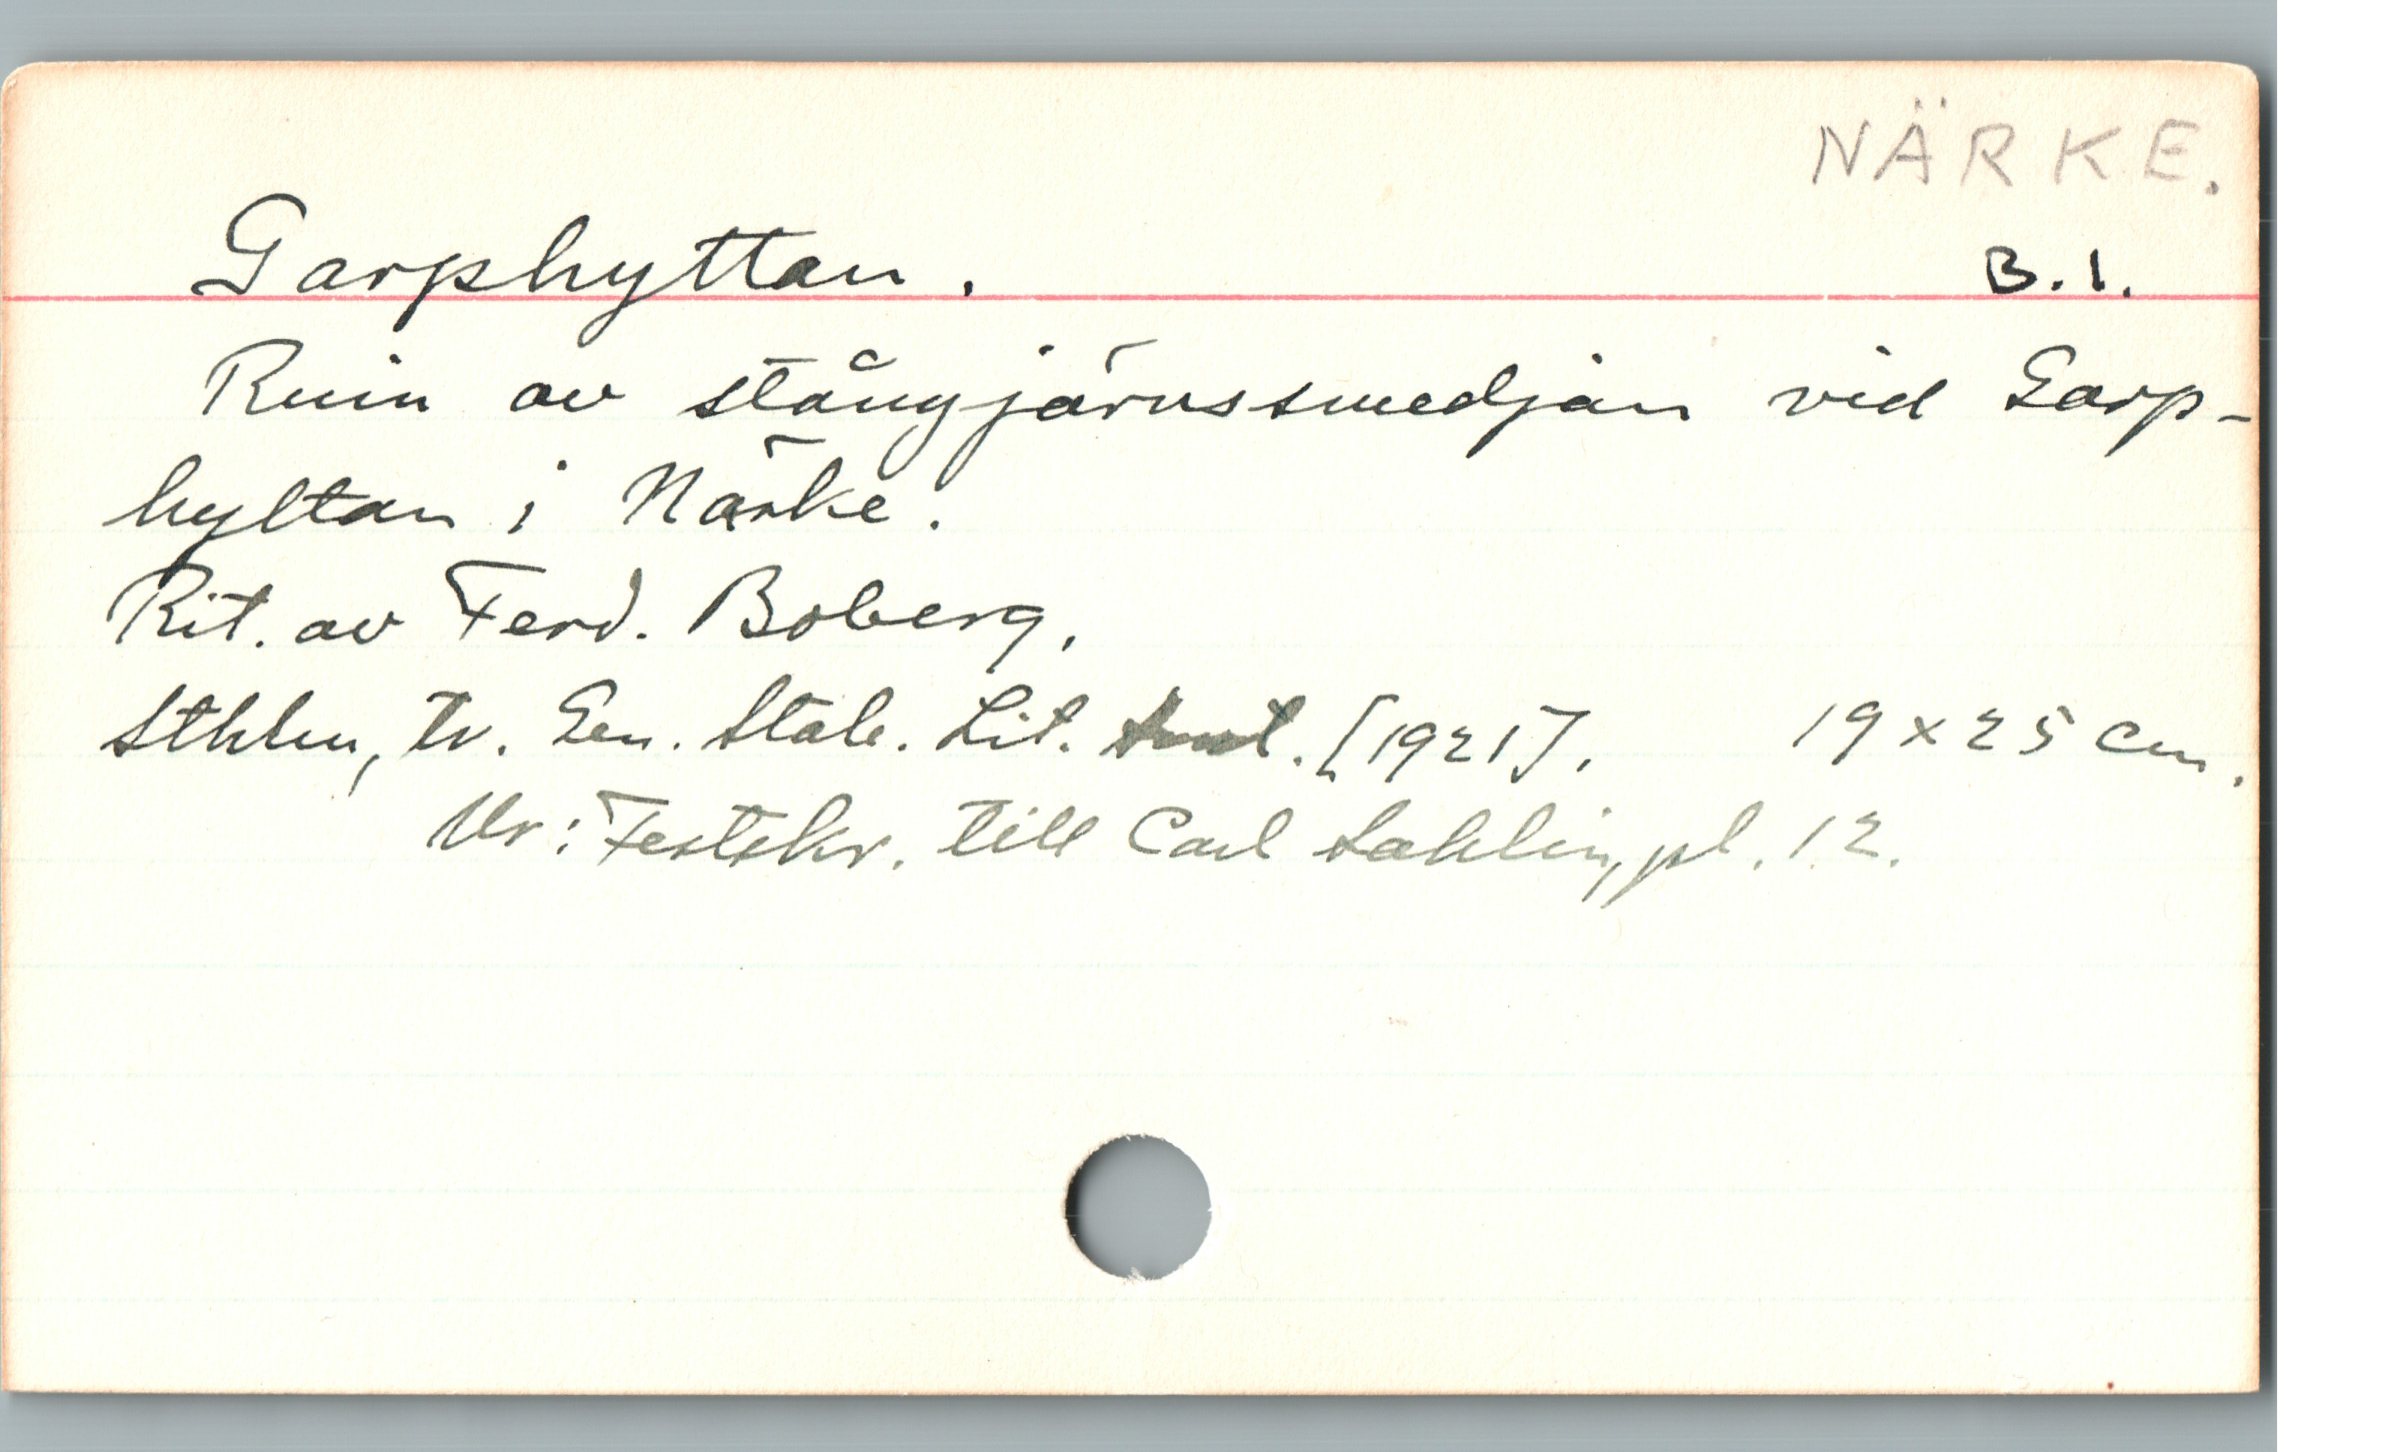 NÄRKE.
Garphyttan. B.1.
Ruin av stångjärnssmedjan vid Garp-
hyttan i Närke.
Rit. av Ferd. Boberg.
Sthlm, tr. Gen. Stab. Lit. Anst. [1921]. 19 x 25 cm.
Ur: Festskr. till Carl Sahlin, pl. 12.